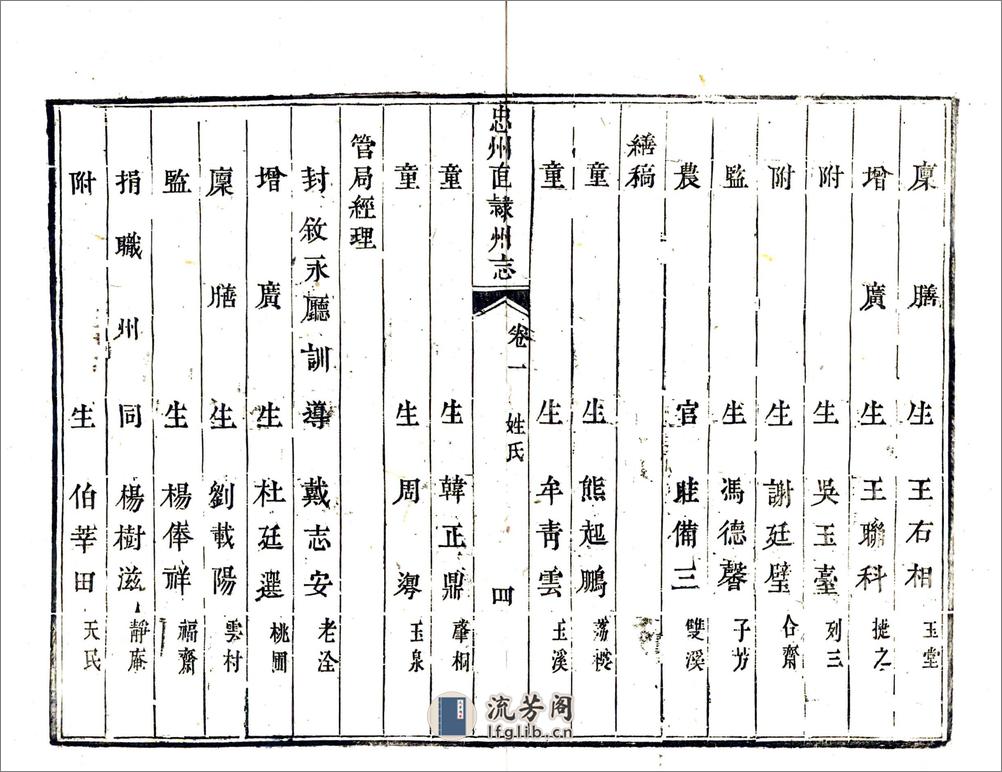 廩膳生王右相玉堂
增廣生王聯科捷之
附生吳玉臺列三
附生謝廷璧合齋
監生馮德馨子芳
農官眭備三雙溪
繕稿
童生熊起鵬
童生牟靑雲玉溪
忠州直隸州志
卷一
姓氏
四
童生韓正鼎肇桐
童生周澪玉泉
管局經理
封敘永廳訓導戴志安老泠
增廣生杜廷選桃圃
廩膳生劉載陽雲村
監生楊俸祥福齋
捐職州同楊樹滋靜庵
附生伯莘田天民
流芳阁
lfglib.cn